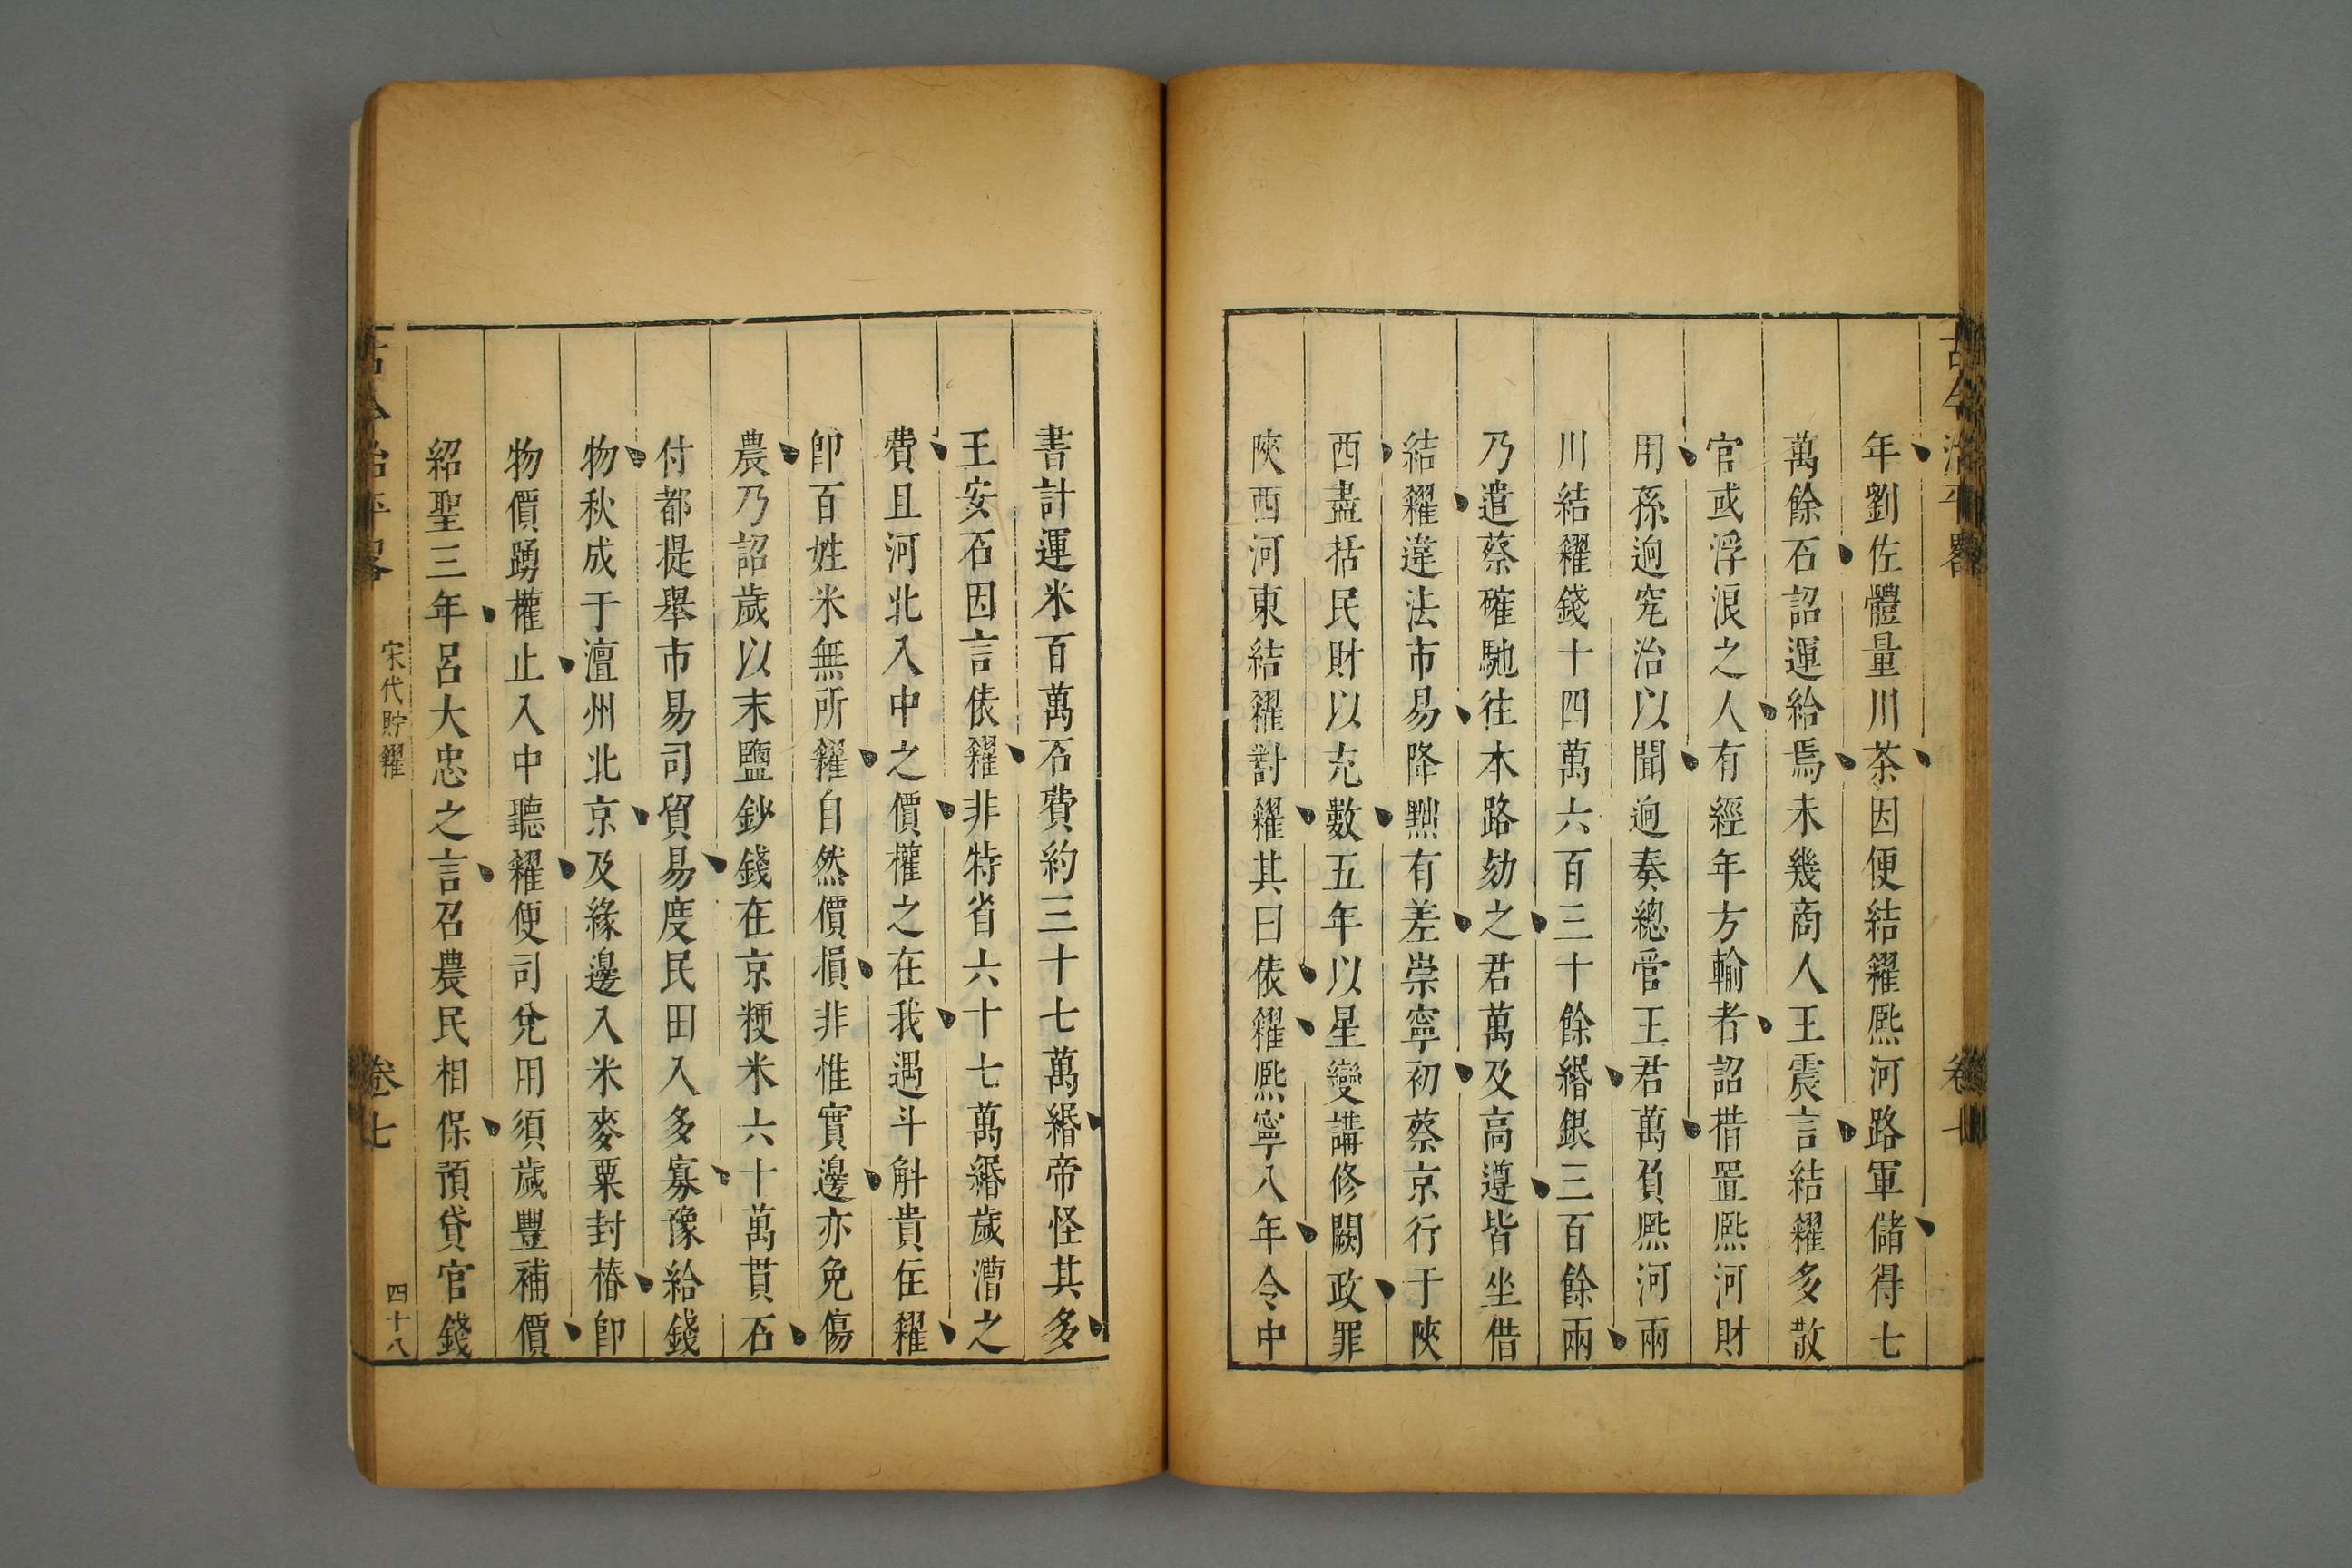 年劉佐體量川茶因便結糴熈河路軍儲得七
萬餘石詔運給焉未幾商人王震言結糴多散
官或浮浪之人有經年方輸者詔措置熈河財
用孫迥究治以聞迥奏總管王君萬負熈河兩
川結糴錢十四萬六百三十餘緡銀三百餘兩
乃遣蔡確馳往本路劾之君萬及高遵皆坐借
結糴違法市易降黜有差崇寧初蔡京行于陜
西盡括民財以充數五年以星變講修闕政罪
陜西河東結糴對糴其曰俵糴熈寧八年令中
書計運米百萬石費約三十七萬緡帝怪其多
王安石因言俵糴非特省六十七萬緡歲漕之
費且河北入中之價權之在我遇斗斛貴住糴
卽百姓米無所糴自然價損非惟實邊亦免傷
農乃詔歲以末鹽鈔錢在京粳米六十萬貫石
付都提舉市易司貿易度民田入多寡豫給錢
物秋成于澶州北京及緣邊入米麥粟封樁卽
物價踴權止入中聽糴便司兌用須歲豐補價
紹聖三年呂大忠之言召農民相保預貸官錢
古今治平畧
宋代貯糴
卷七
四十八